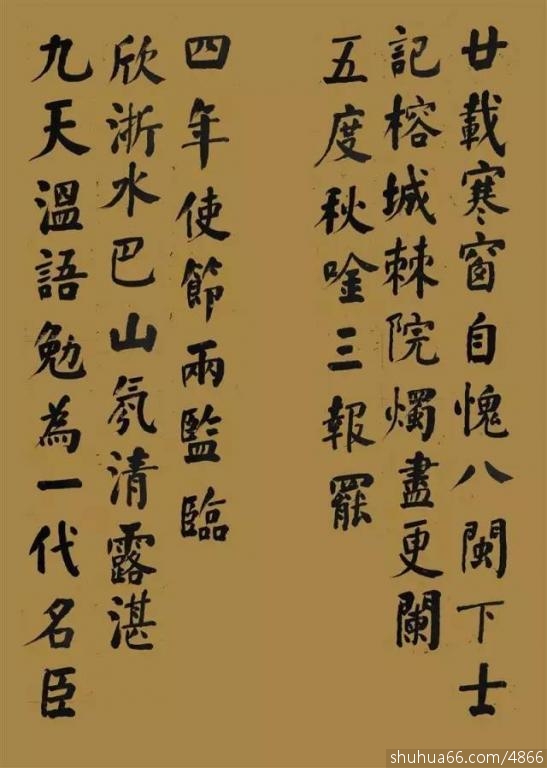 廿載寒窗自愧八閩下士
記榕城棘院燭盡更闌
五度秋唫三報罷
四年使節兩監臨
欣浙水巴山氛清露湛
九天溫語勉為一代名臣
shuhua66.com/4866